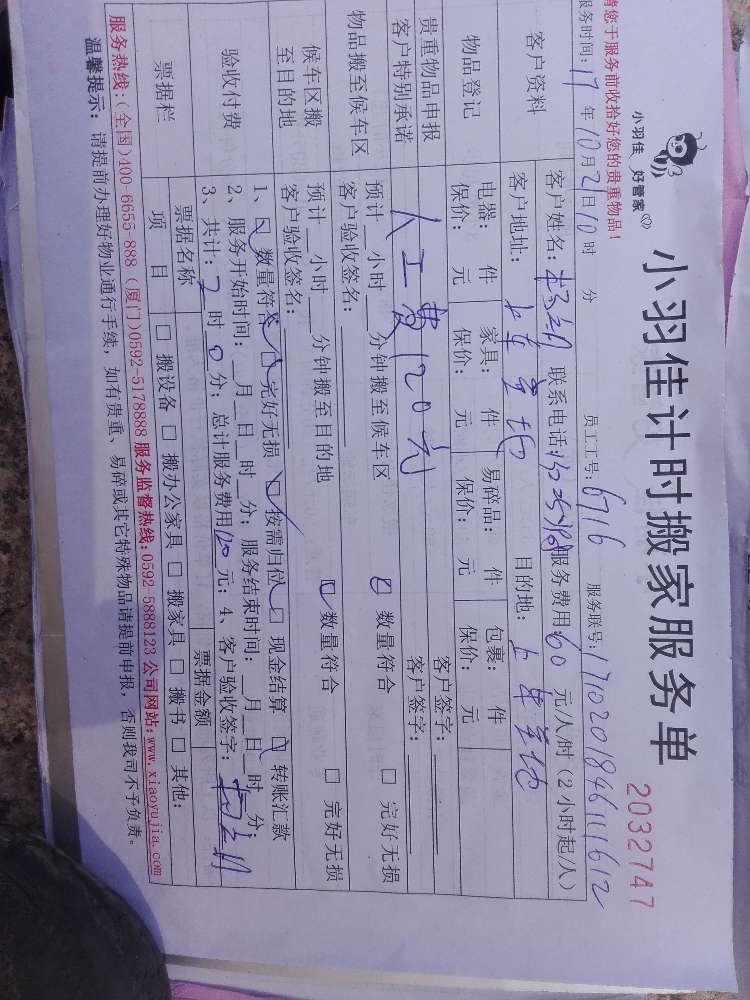 小羽佳 好管家
小羽佳计时搬家服务单
2032747
请您于服务前收拾好您的贵重物品！
服务时间：17年10月21日10时 分 员工工号：6716 服务联号：171020184611612
客户资料
客户姓名： 联系电话： 服务费用：60元/人/时（2小时起/人）
客户地址： 目的地：
物品登记
电器： 件 家具： 件 易碎品： 件 包裹： 件
保价： 元 保价： 元 保价： 元 保价： 元
贵重物品申报 客户签字：
客户特别承诺 人工费120元 客户签字：
物品搬至候车区
预计__小时__分钟搬至候车区 数量符合 □ 完好无损
客户验收签名：
候车区搬至目的地
预计__小时__分钟搬至目的地 数量符合 □ 完好无损
客户验收签名：
验收付费
1、数量符合 完好无损 按需归位 □ 现金结算 转账汇款
2、服务开始时间：__月__日__时__分；服务结束时间：__月__日__时__分；
3、共计：2时0分；总计服务费用120元；4、客户验收签字：
票据栏
票据名称 票据金额
项目 □ 搬设备 □ 搬办公家具 □ 搬家具 □ 搬书 □ 其他：
服务热线：(全国)400-6655-888 (厦门)0592-5178888 服务监督热线：0592-5888123 公司网站：www.xiaoyujia.com
温馨提示：请提前办理好物业通行手续，如有贵重、易碎或其它特殊物品请提前申报，否则我司不予负责。